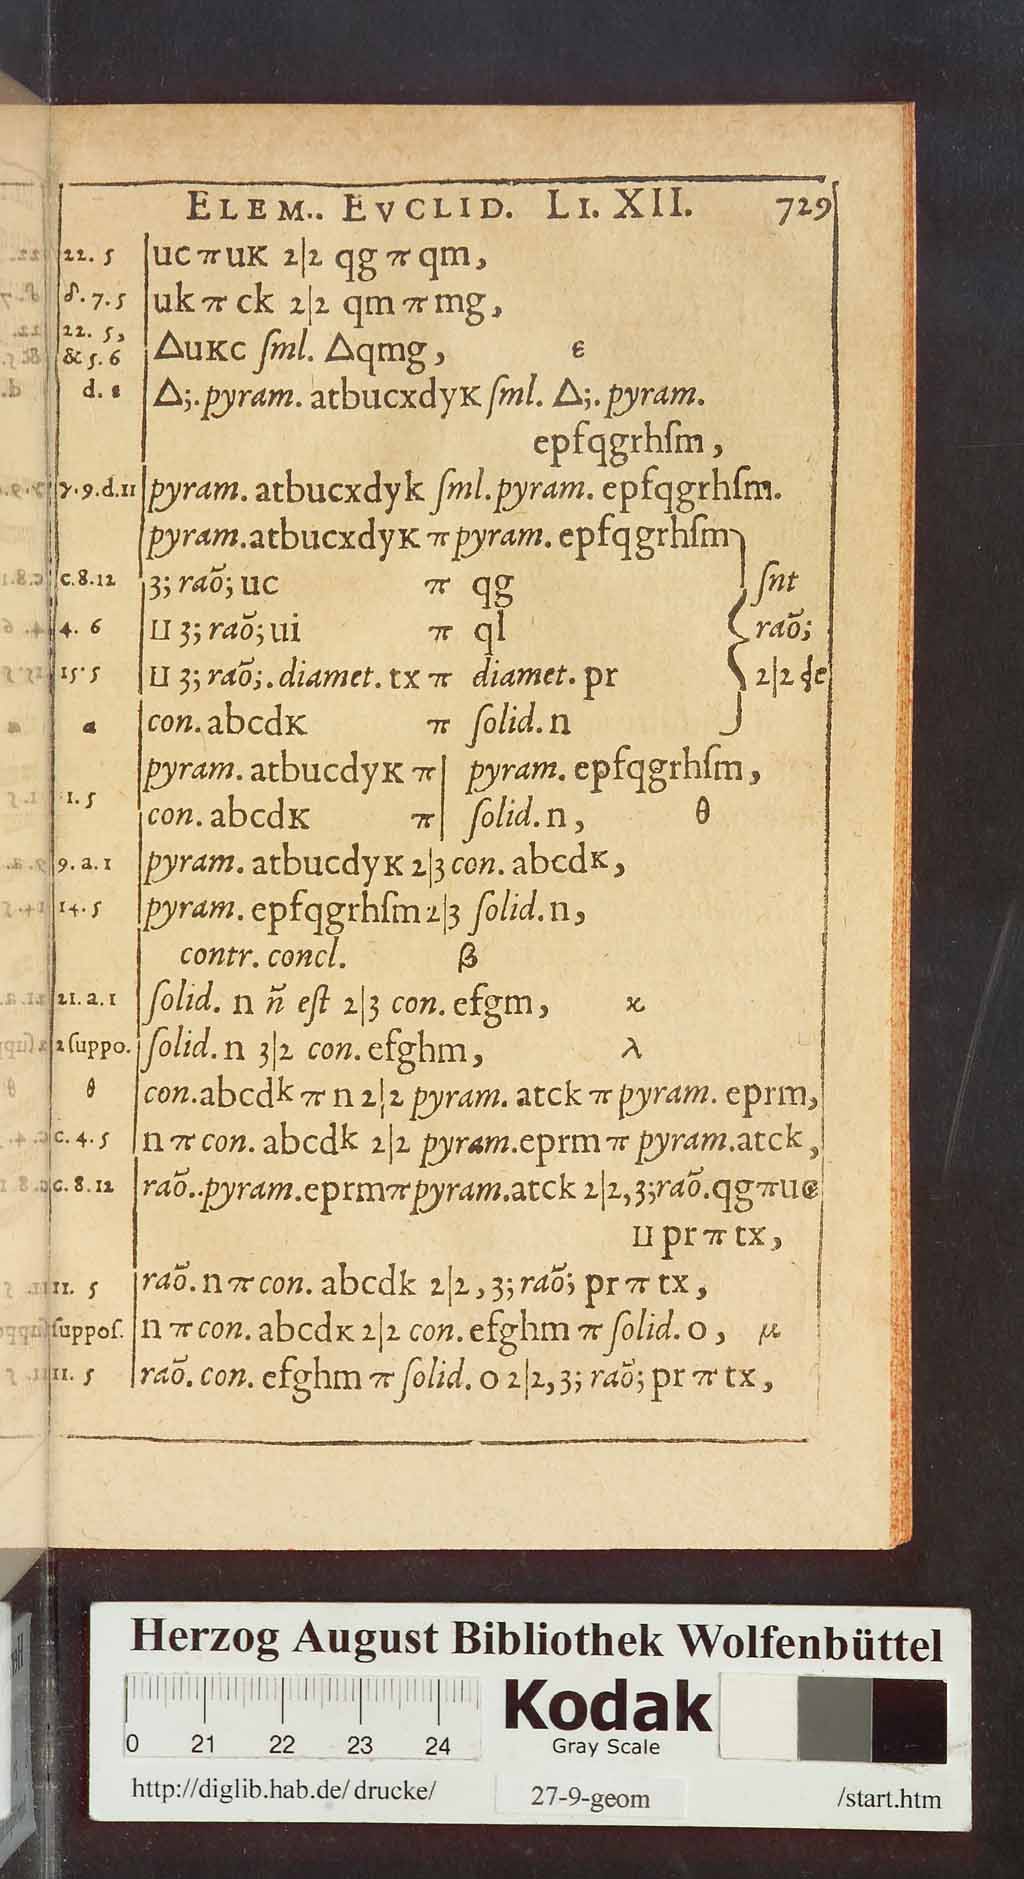 ELEM.. EVCLID. LI. XII. 729
22. 5 uc π uK 2|2 qg π qm,
δ. 7. 5 uk π ck 2|2 qm π mg,
22. 5,
& 5. 6 ΔuKc ſml. Δqmg, ε
d. ε Δ;. pyram. atbucxdyK ſml. Δ;. pyram.
epfqgrhſm,
γ. 9. d. 11 pyram. atbucxdyk ſml. pyram. epfqgrhſm.
pyram. atbucxdyK π pyram. epfqgrhſm
c. 8. 12 3; raõ; uc π qg ſnt
4. 6 ⊔ 3; raõ; ui π ql raõ;
15. 5 ⊔ 3; raõ;. diamet. tx π diamet. pr 2|2 de
a con. abcdK π ſolid. n
pyram. atbucdyK π | pyram. epfqgrhſm,
1. 5
con. abcdK π | ſolid. n, θ
9. a. 1 pyram. atbucdyK 2|3 con. abcdK,
14. 5 pyram. epfqgrhſm 2|3 ſolid. n,
contr. concl. β
21. a. 1 ſolid. n ñ eſt 2|3 con. efgm, ϰ
2 ſuppo. ſolid. n 3|2 con. efghm, λ
θ con. abcdk π n 2|2 pyram. atck π pyram. eprm,
c. 4. 5 n π con. abcdk 2|2 pyram. eprm π pyram. atck,
c. 8. 12 raõ.. pyram. eprm π pyram. atck 2|2, 3; raõ. qg π uc
⊔ pr π tx,
11. 5 raõ. n π con. abcdk 2|2, 3; raõ; pr π tx,
ſuppoſ. n π con. abcdK 2|2 con. efghm π ſolid. o, μ
11. 5 raõ. con. efghm π ſolid. o 2|2, 3; raõ; pr π tx,
Herzog August Bibliothek Wolfenbüttel
0 21 22 23 24
Kodak
Gray Scale
http://diglib.hab.de/drucke/ 27-9-geom /start.htm